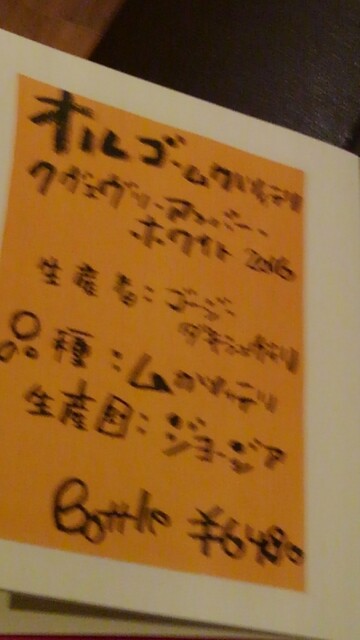 オルゴ・ムツバァテリ
クヴェヴリ・アンバー・
ホワイト 2016
生産者：ゴーゴー
品種：ムツバァテリ
生産国：ジョージア
Bottle ¥6480